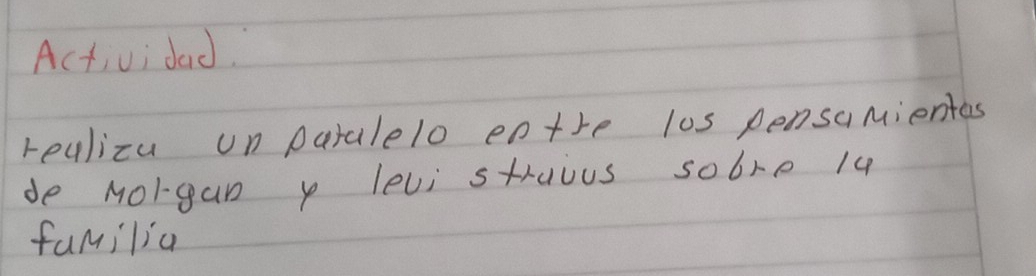 Actividad.
realiza un paralelo entre los pensamientos
de Morgan y levi strauus sobre la
familia